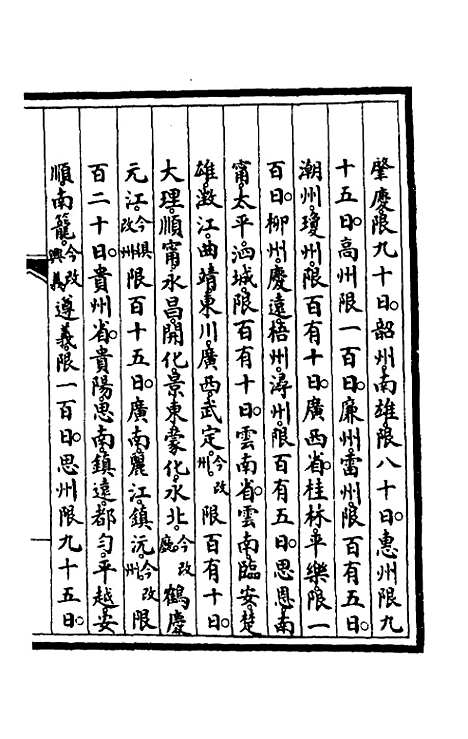 肇慶限九十日韶州南雄限八十日惠州限九
十五日高州限一百日廉州雷州限百有五日
潮州瓊州限百有十日廣西省桂林平樂限一
百日柳州慶遠梧州潯州限百有五日思恩南
甯太平泗城限百有十日雲南省雲南臨安楚
雄澂江曲靖東川廣西武定今改州限百有十日
大理順甯永昌開化景東蒙化永北今改廳鶴慶
元江今俱改州限百十五日廣南麗江鎮沅今改州限
百二十日貴州省貴陽思南鎮遠都勻平越安
順南籠今改興義遵義限一百日思州限九十五日